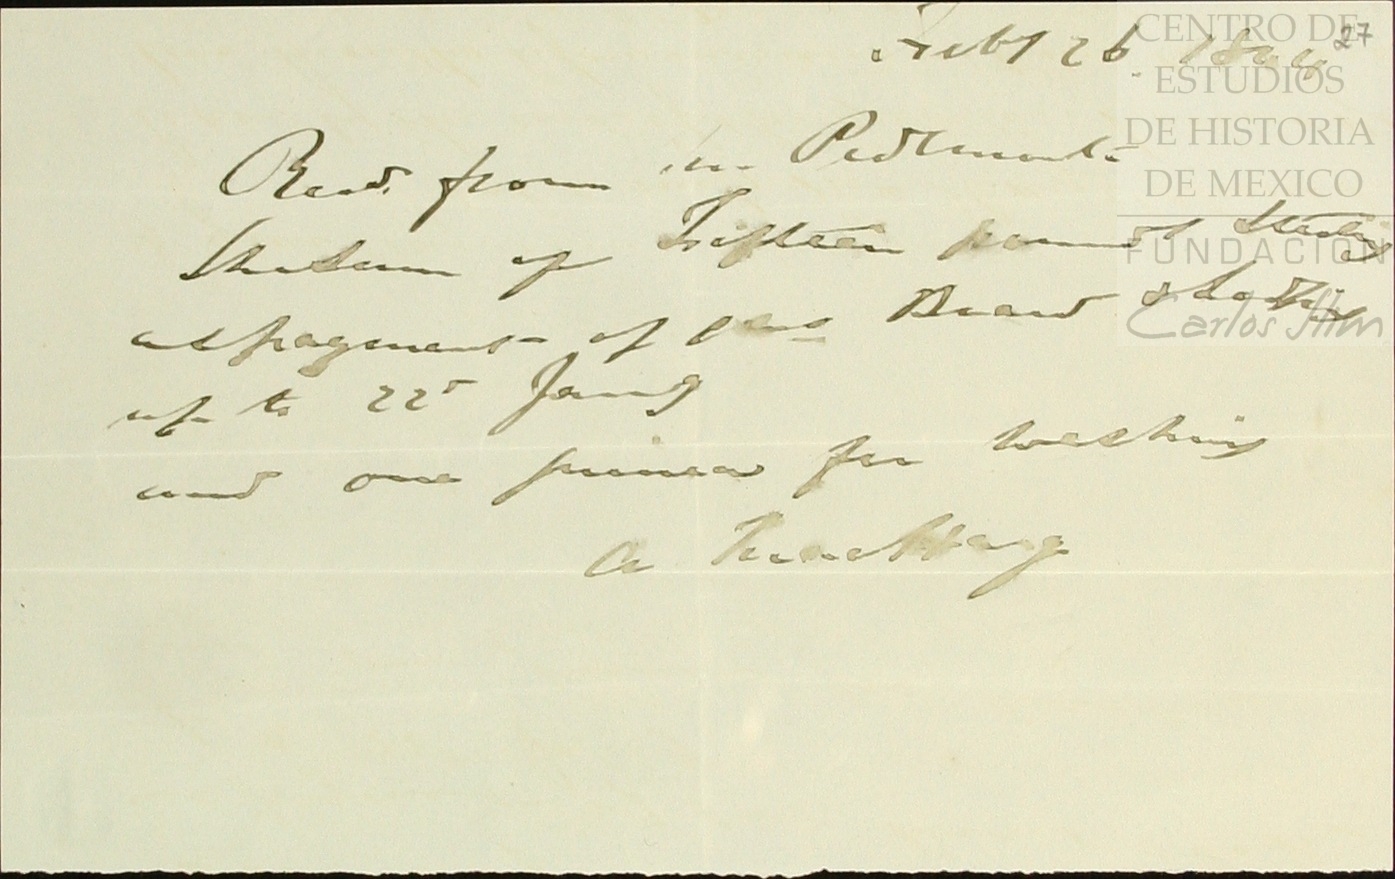 Feby 26 1844
27
Recd. from Mr
the sum of Fifteen pounds Sterling
as payment of his Board & Lodging
up to 22d Jany
and one guinea for washing
A
CENTRO DE
ESTUDIOS
DE HISTORIA
DE MEXICO
FUNDACIÓN
Carlos Slim